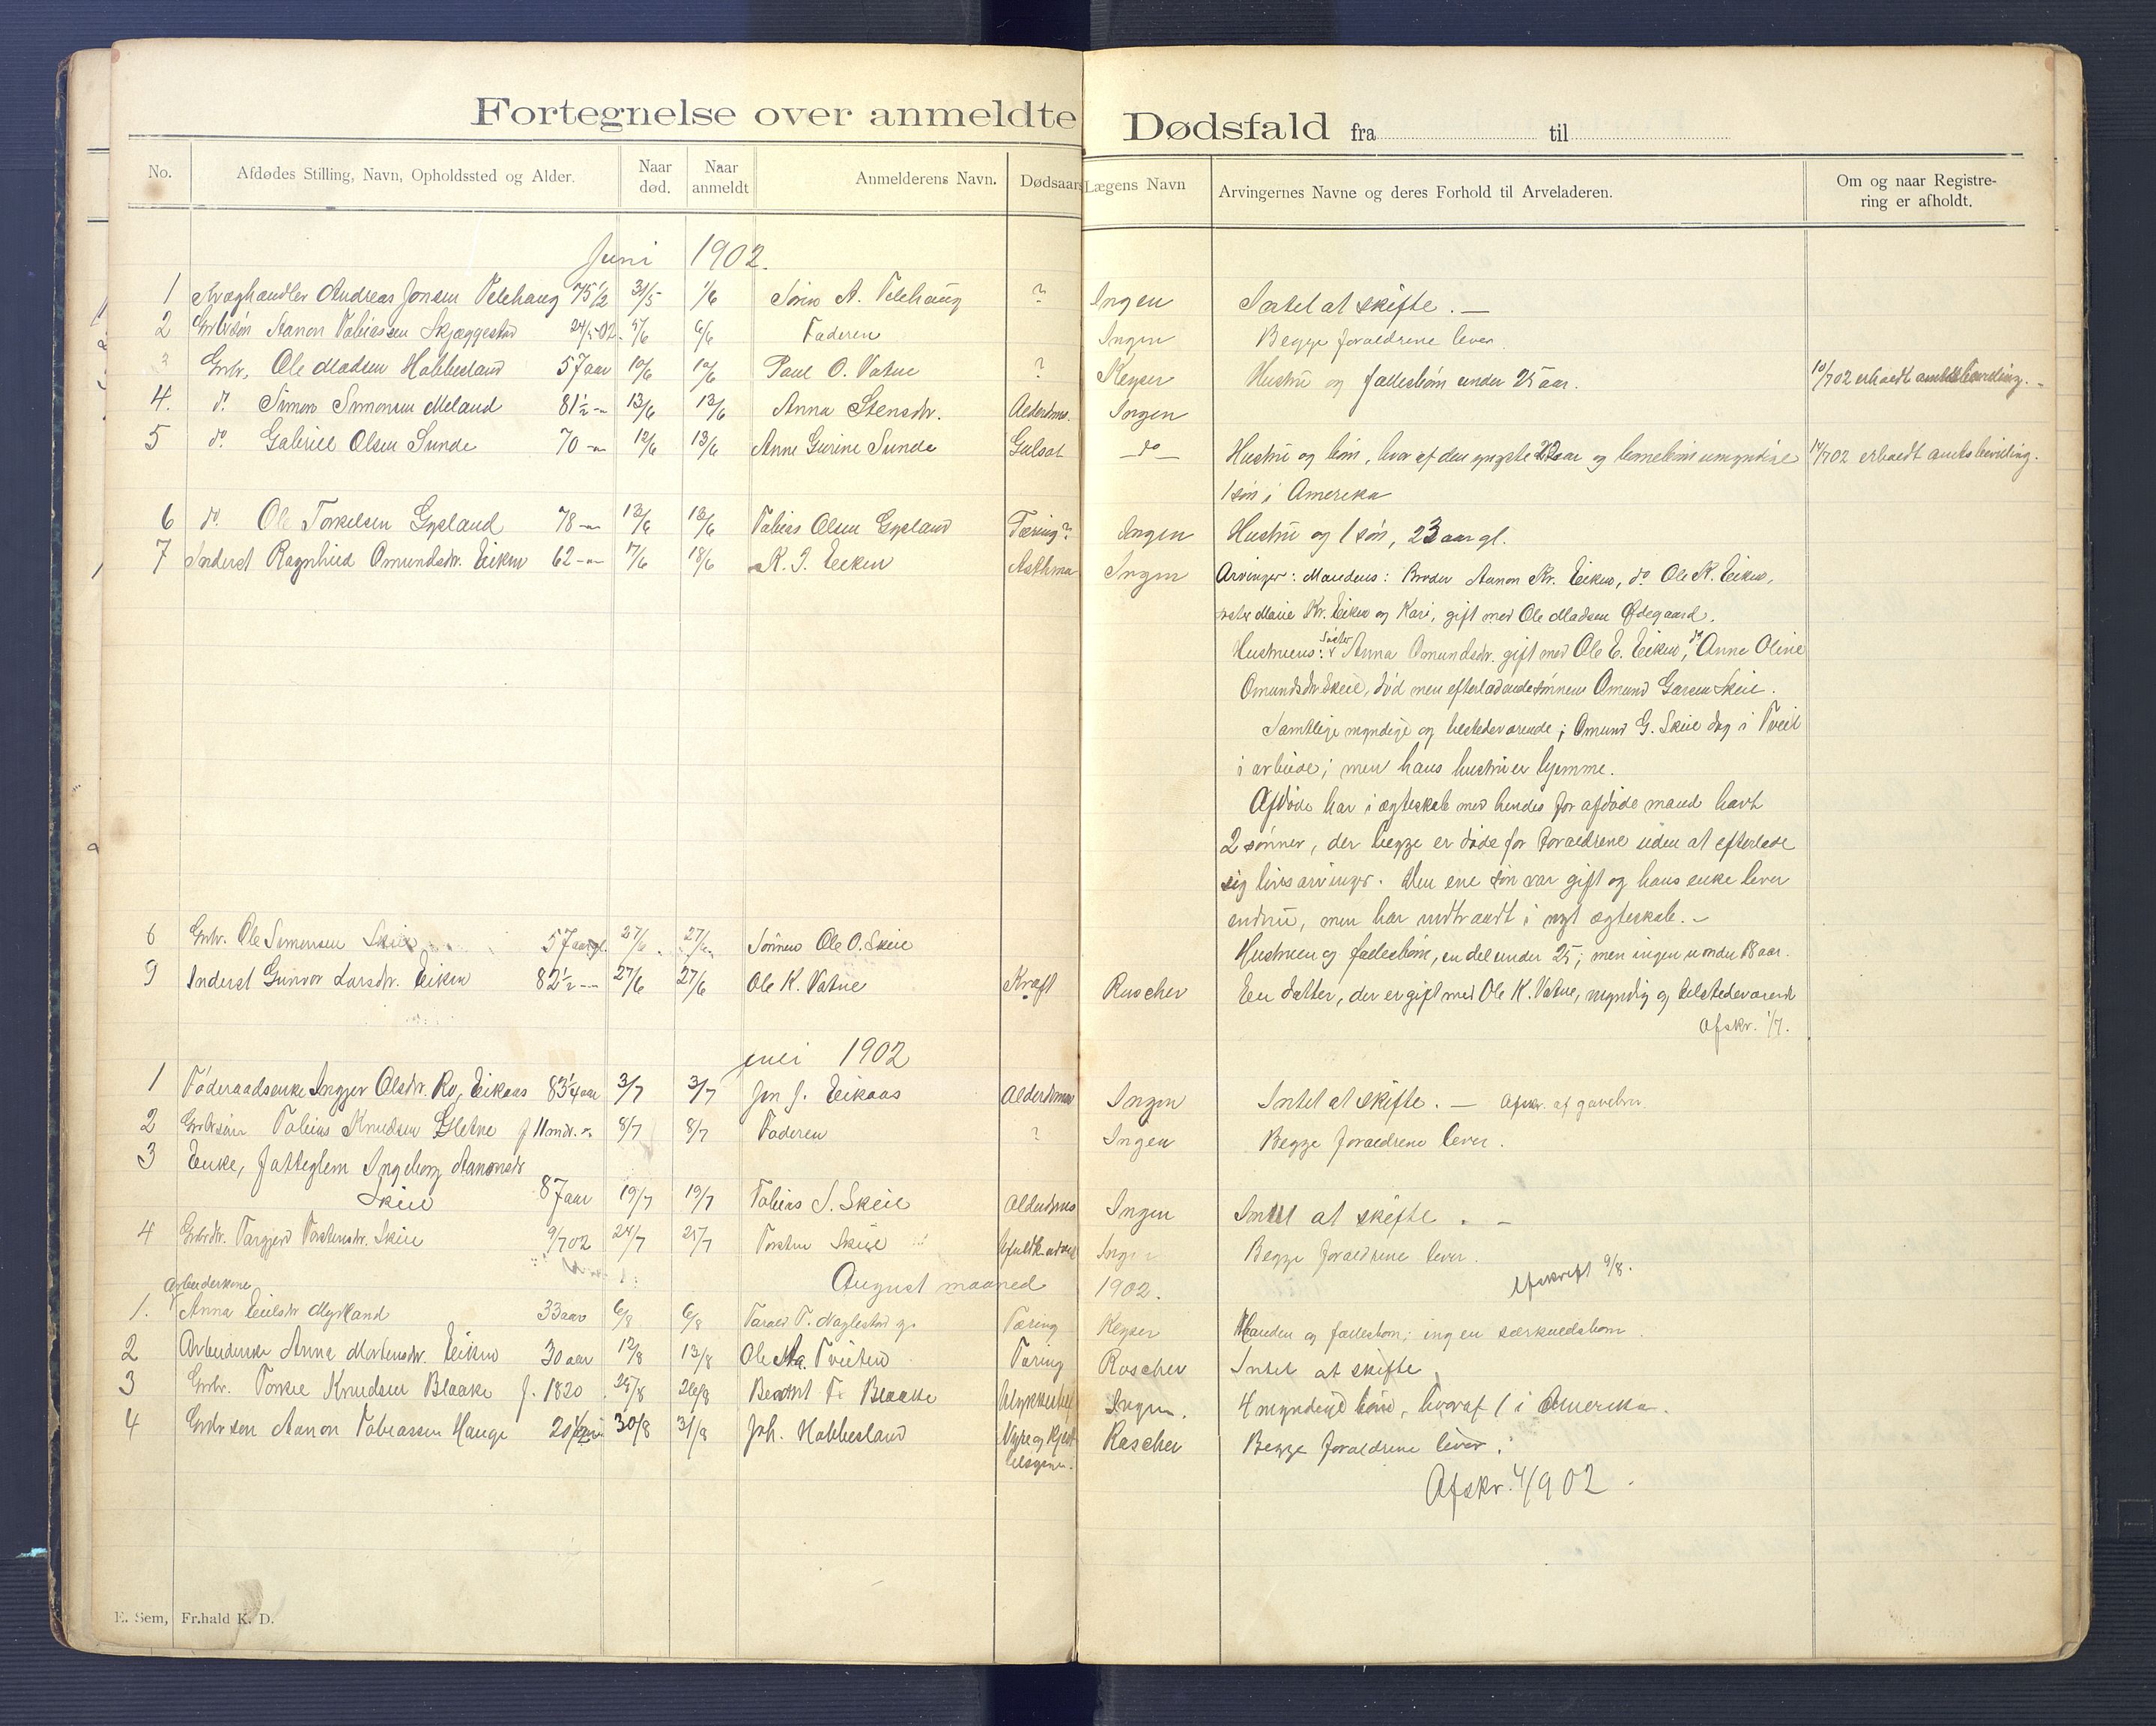 Fortegnelse over anmeldte Dødsfald fra til
No. Afdødes Stilling, Navn, Opholdssted og Alder. Naar død. Naar anmeldt Anmelderens Navn. Dødsaars Lægens Navn Arvingernes Navne og deres Forhold til Arveladeren. Om og naar Registrering er afholdt.
Juni 1902.
1 Kræghandler Andreas Jonsen Velehaug 75 1/2 31/5 1/6 A. Velehaug ? Ingen Intet at skifte. —
2 Grbrsøn Aanon Tobiassen Skjæggestad 24/5-02. 5/6 6/6 Faderen Ingen Begge forældrene lever
3 Grbr. Ole Madsen Hobbesland 57 aar 10/6 10/6 Paul O. Vatne ? Keyser Hustru og fællesbørn under 25 aar. 10/702 erholdt amtsbevilling. -
4. do. Simon Simonsen Meland 81 1/2 -"- 13/6 13/6 Anna Stensdtr. Alderdoms. Ingen
5 do. Gabriel Olsen Sunde 70 -"- 12/6 13/6 Anne Gurine Sunde Gulsot -do- Hustru og børn, hvoraf den yngste 22 aar og børnebørn umyndige 14/702 erholdt amtsbevilling.
1 søn i Amerika
6 do. Ole Torkelsen Gysland 78 -"- 13/6 13/6 Tobias Olsen Gysland Tæring? Ingen Hustru og 1 søn, 23 aar gl.
7 Inderst Ragnhild Omundsdtr. Eiken 62 -"- 17/6 18/6 K. T. Eeiken Asthma Ingen Arvinger: Mandens: Broder Aanon Kr. Eiken, do Ole K. Eiken,
søster Marie Kr. Eiken og Kari, gift med Ole Madsen Ødegaard.
Hustruens: søster Anna Omundsdtr. gift med Ole E. Eiken, do Anne Oline
Omundsdtr Skeie, død men efterladende sønnen Omund Garsen Skeie.
Samtlige myndige og tilstedeværende; Omund G. Skeie dog i Tveit
i arbeide; men hans hustru er hjemme.
Afdøde har i ægteskab med hendes før afdøde mand havt
2 sønner, der begge er døde før forældrene uden at efterlade
sig livsarvinger. Den ene søn var gift og hans enke lever
endnu, men har indtraadt i nyt ægteskab. -
8 Grbr. Ole Simonsen Skeie 57 aar gl. 27/6 27/6 Sønnen Ole O. Skeie Hustruen og fællesbørn, en del under 25, men ingen under 18 aar.
9 Inderst Gunvor Larsdtr. Eiken 82 1/2 -- 27/6 27/6 Ole K. Vatne Kræft Roscher Een datter, der er gift med Ole K. Vatne, myndig og tilstedeværende
Afskr. 1/7.
juli 1902
1 Føderaadsenke Ingjer Olsdtr. Ro, Eikaas 83 1/4 aar 3/7 3/7 Jon J. Eikaas Alderdomsv Ingen Intet at skifte. — Afskr. af gavebrev
2 Grbrsøn Tobias Knudsen Sletne f 11 mdr. 8/7 8/7 Faderen ? Ingen Begge forældrene lever.
3 Enke, fattiglem Ingeborg Aanonsdtr
Skeie 87 aar 19/7 19/7 Tobias S. Skeie Alderdoms Ingen Intet at skifte. -
4 Grbrdtr. Torgjerd Torstensdtr. Skeie 9/702 24/7 25/7 Torsten Skeie Ingen Begge forældrene lever.
Afskrift 9/8.
August maaned 1902.
Arbeiderkone
1. Anna Eeilsdtr Myrland 33 aar 6/8 6/8 Tarald T. Naglestad Tæring Keyser Manden og fællesbørn; ingen særkuldsbørn.
2 Arbeiderske Anna Mortensdtr. Eiken 30 aar 12/8 13/8 Ole Aa. Tveiten Tæring Roscher Intet at skifte
3 Grbr. Torkel Knudsen Blaake f. 1820. 25/8 26/8 Berent T. Blaake Ulykkestilf Ingen. 4 myndige børn, hvoraf 1 i Amerika.
4 Grbr søn Aanon Tobiassen Hauge 30/8 31/8 Joh. Hobbesland Nyre og hjerte Roscher Begge forældrene lever.
Afskr. 4/902.
E. Sem, Fr.hald K. D.